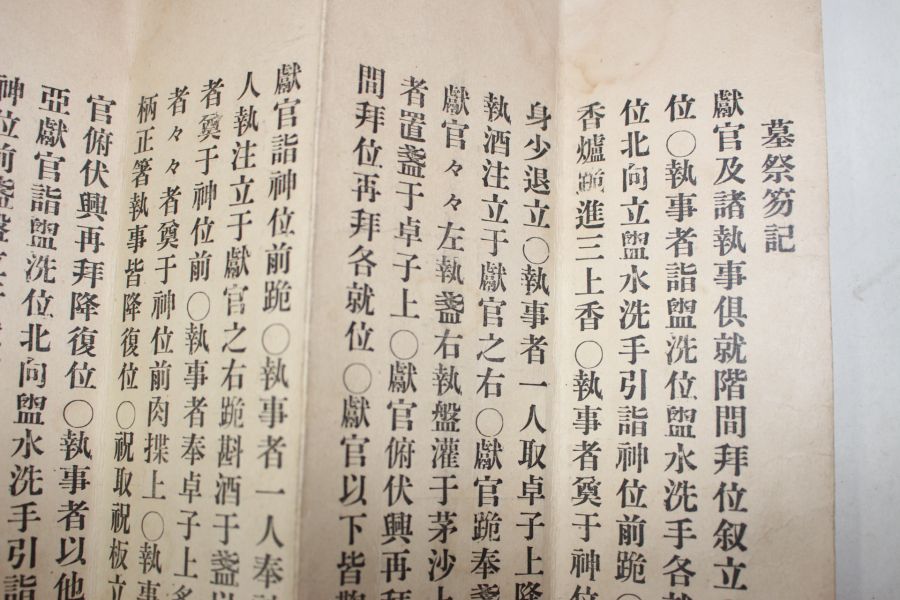 墓祭笏記
獻官及諸執事俱就階間拜位叙立
位〇執事者詣盥洗位盥水洗手各
位北向立盥水洗手引詣神位前跪〇
香爐跪進三上香〇執事者奠于神位
身少退立〇執事者一人取卓子上降
執酒注立于獻官之右〇獻官跪奉盞
獻官々々左執盞右執盤灌于茅沙上
者置盞于卓子上〇獻官俯伏興再拜
間拜位再拜各就位〇獻官以下皆
獻官詣神位前跪〇執事者一人奉
人執注立于獻官之右跪斟酒于盞以
者奠于神位前〇執事者奉卓子上
者々々者奠于神位前肉揲上〇執事
柄正箸執事皆降復位〇祝取祝板立
官俯伏興再拜降復位〇執事者以他
亞獻官詣盥洗位北向盥水洗手引詣
神位前盞盤